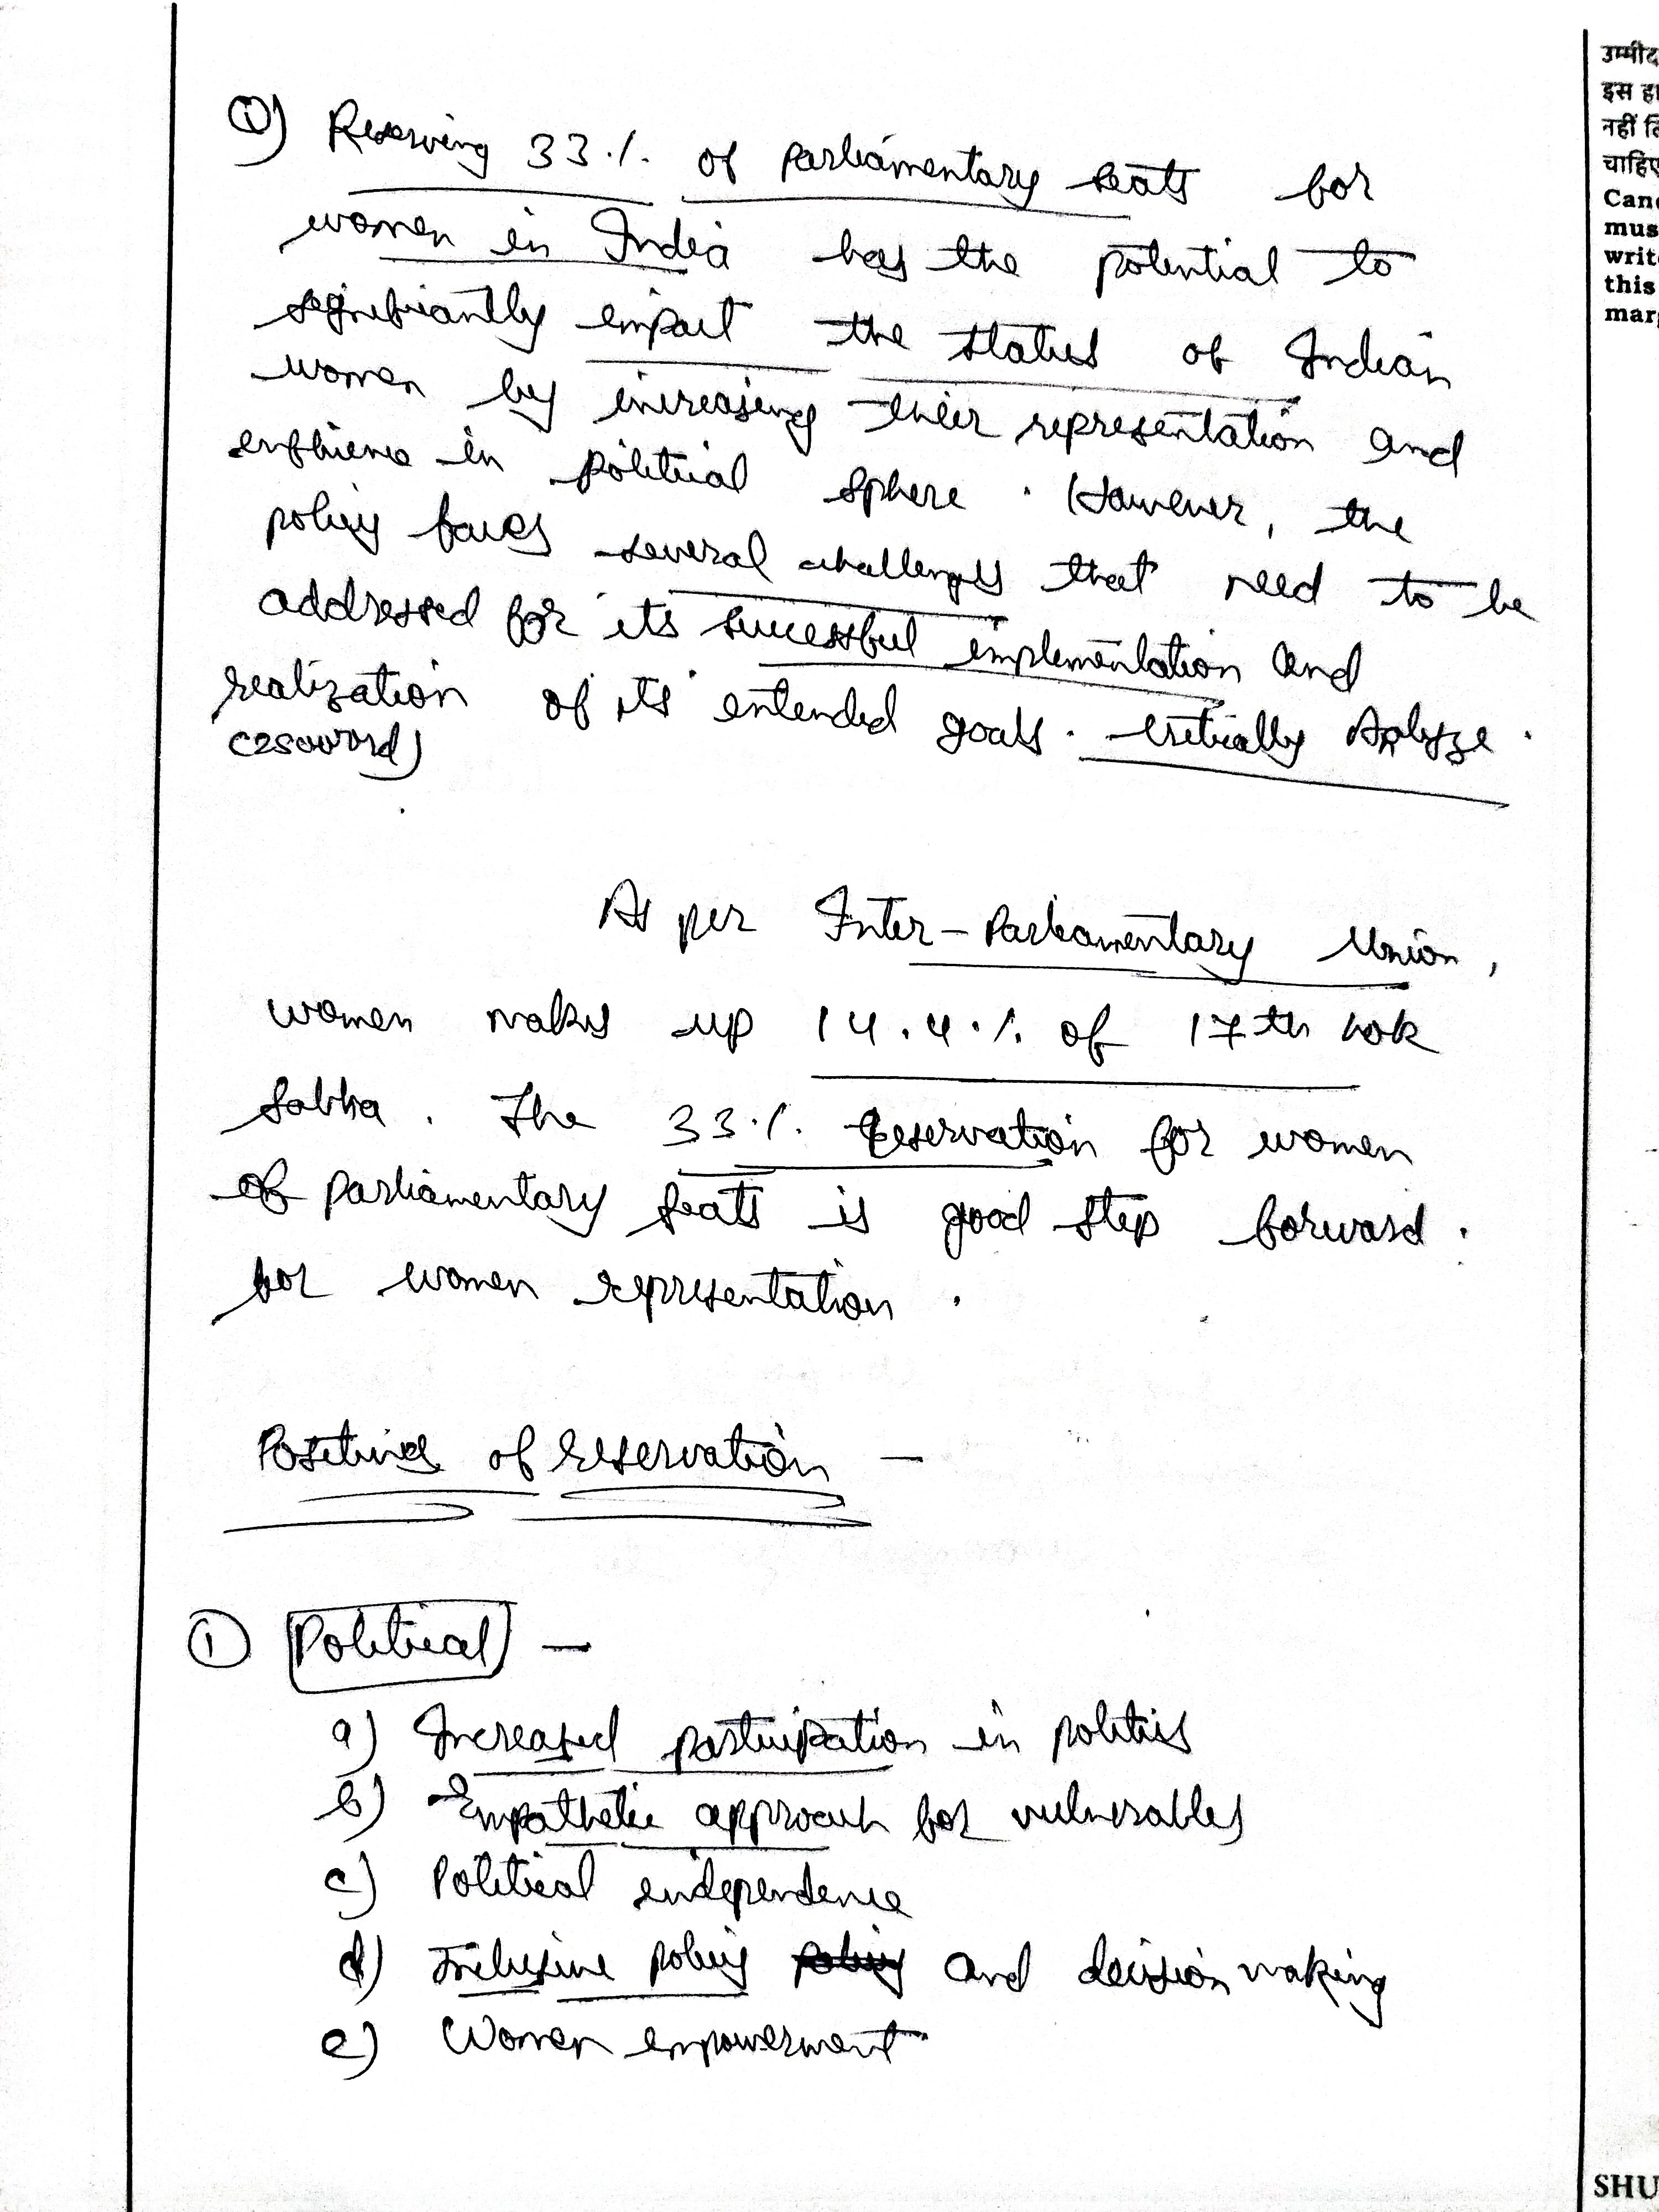 Q) Reserving 33.1. of parliamentary seats for
women in India has the potential to
significantly impact the status of Indian
women by increasing their representation and
influence in political sphere. However, the
policy faces several challenges that need to be
addressed for its successful implementation and
realization of its intended goals. Critically Analyze.
(250word)
As per Inter-Parliamentary Union,
women makes up 14.4.1. of 17th Lok
Sabha. The 33.1. Reservation for women
of parliamentary seats is good step forward.
for women representation.
Positives of reservation -
① Political -
a) Increased participation in politics
b) Empathetic approach for vulnerables
c) Political independence
d) Inclusive policy policy and decision making
e) Women empowerment
इस
Can
mus
writ
this
mar
SHU